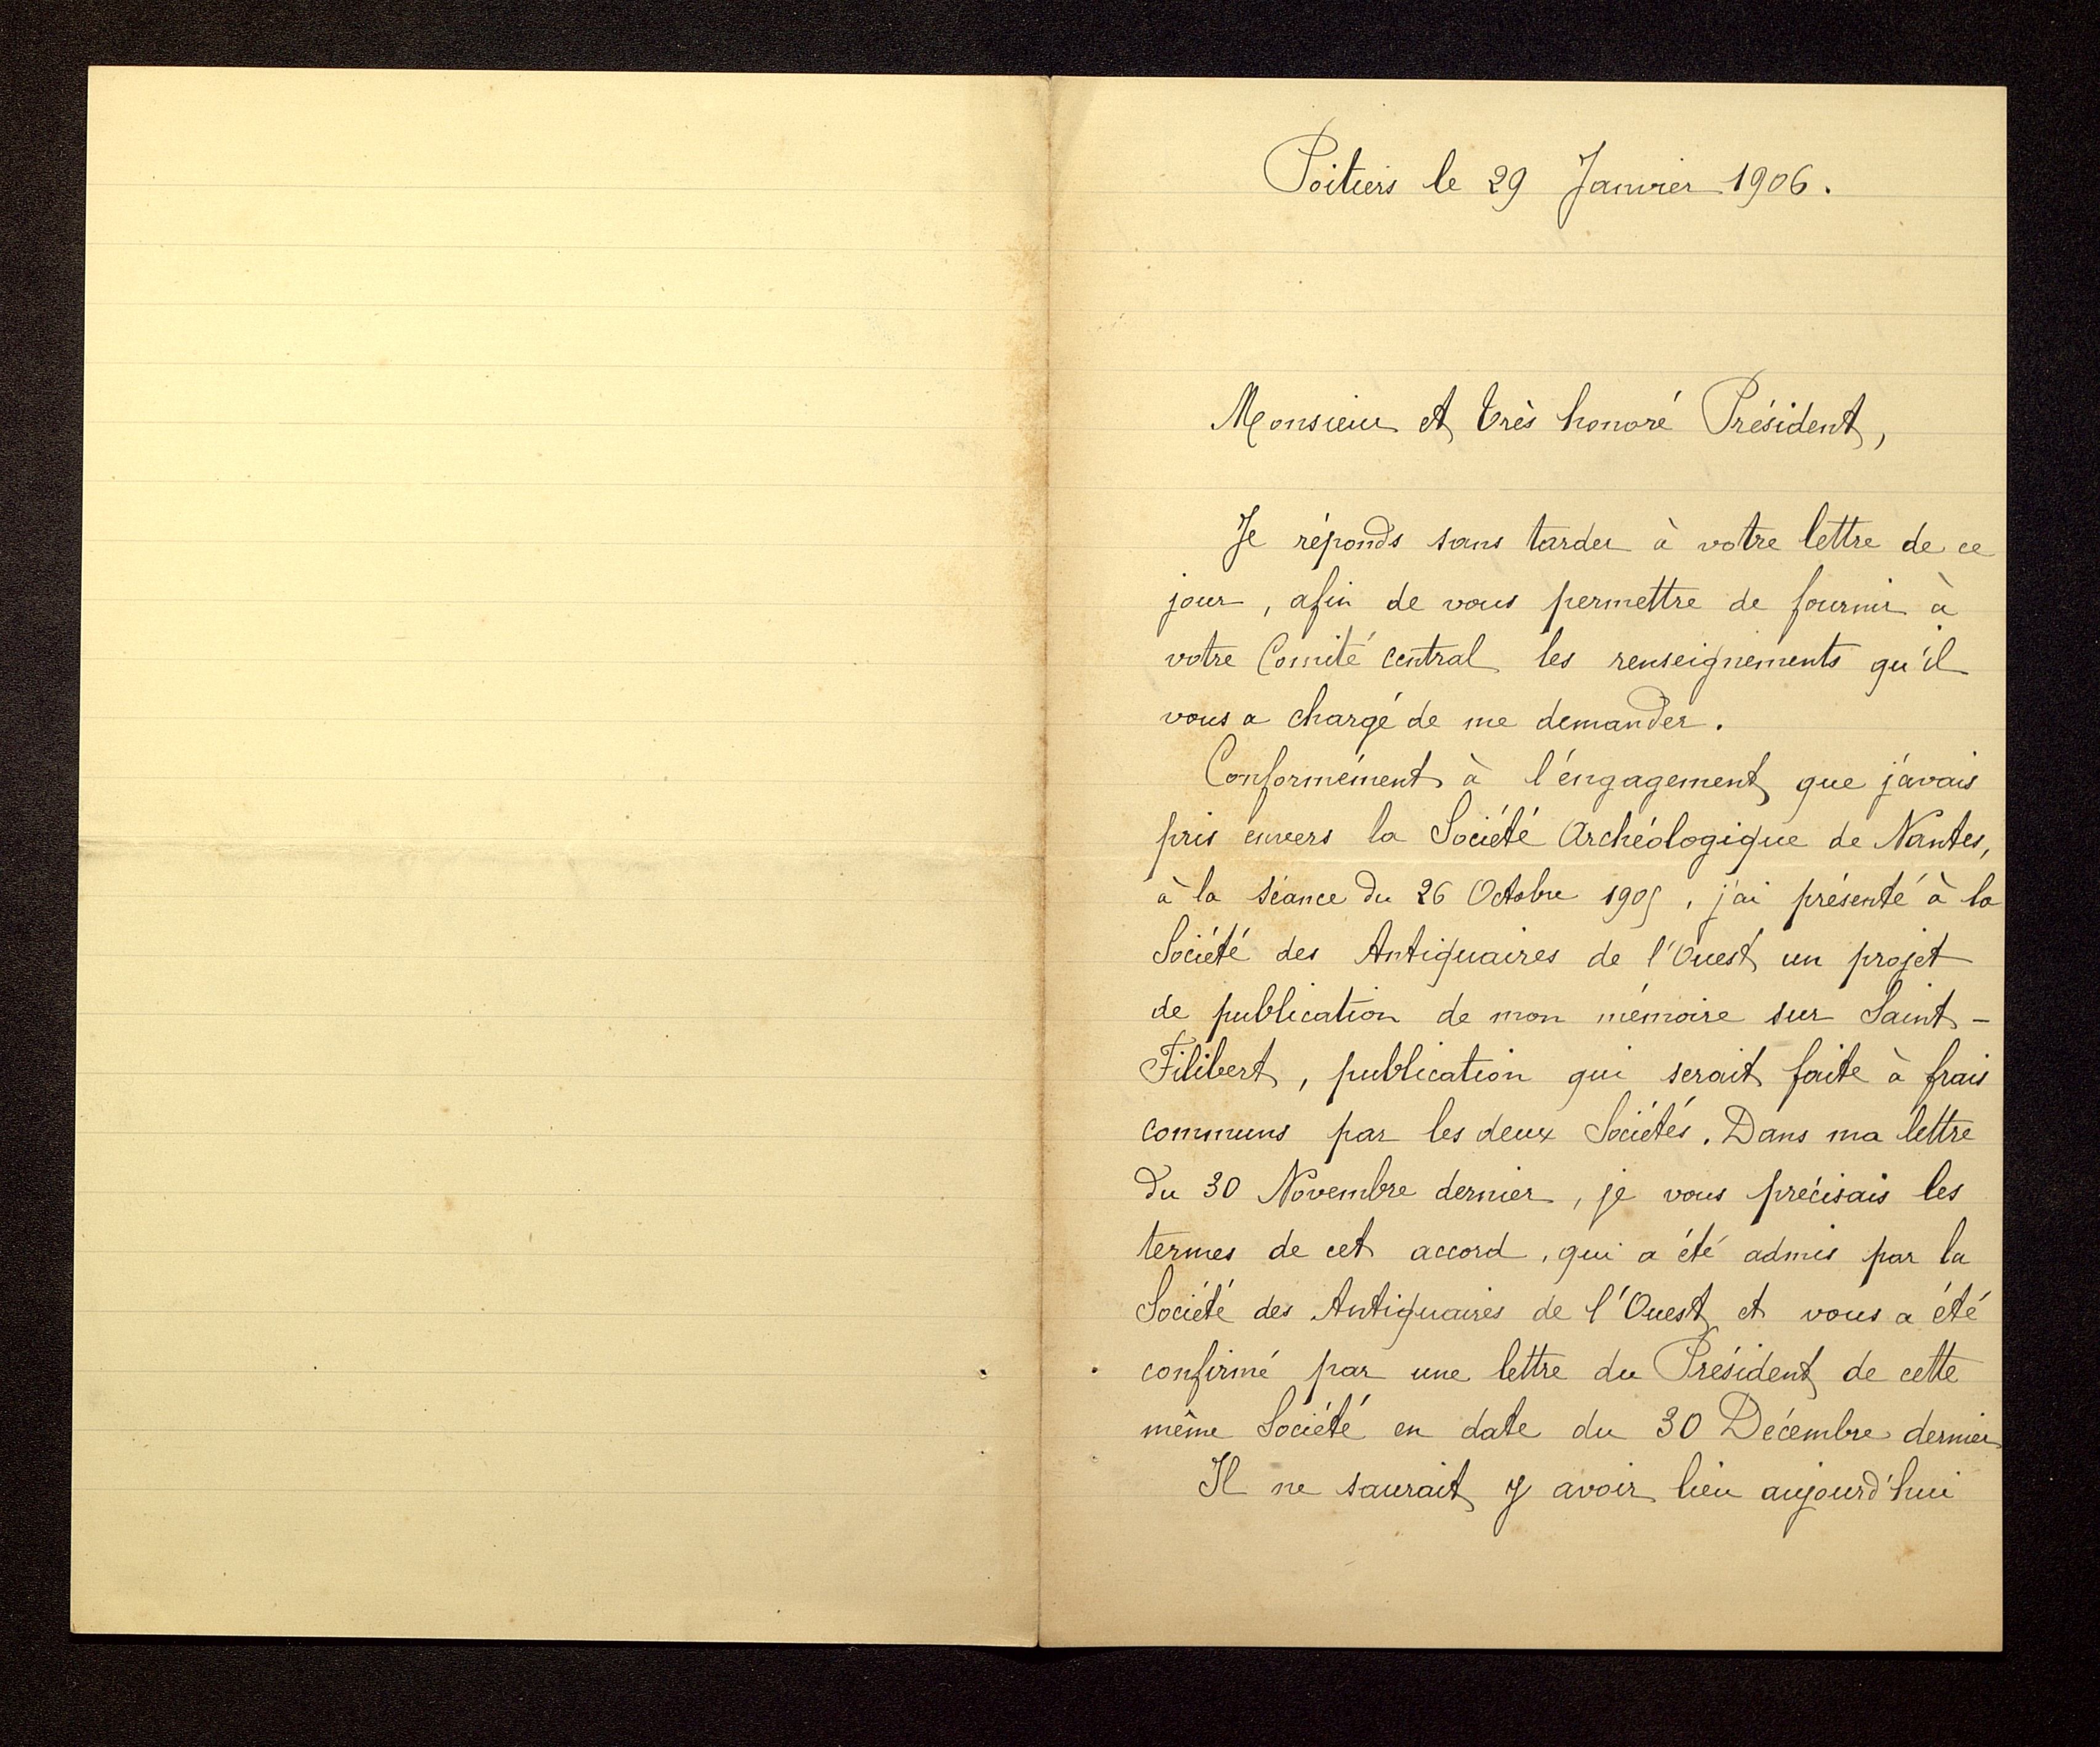 Poitiers le 29 Janvier 1906.
Monsieur et très honoré Président,
Je réponds sans tarder à votre lettre de ce
jour, afin de vous permettre de fournir à
votre Comité central les renseignements qu'il
vous a chargé de me demander.
Conformément à l'engagement que j'avais
pris envers la Société Archéologique de Nantes,
à la séance du 26 Octobre 1905, j'ai présenté à la
Société des Antiquaires de l'Ouest un projet
de publication de mon mémoire sur Saint-
Filibert, publication qui serait faite à frais
communs par les deux Sociétés. Dans ma lettre
du 30 Novembre dernier, je vous précisais les
termes de cet accord, qui a été admis par la
Société des Antiquaires de l'Ouest et vous a été
confirmé par une lettre du Président de cette
même Société en date du 30 Décembre dernier
Il ne saurait y avoir lieu aujourd'hui